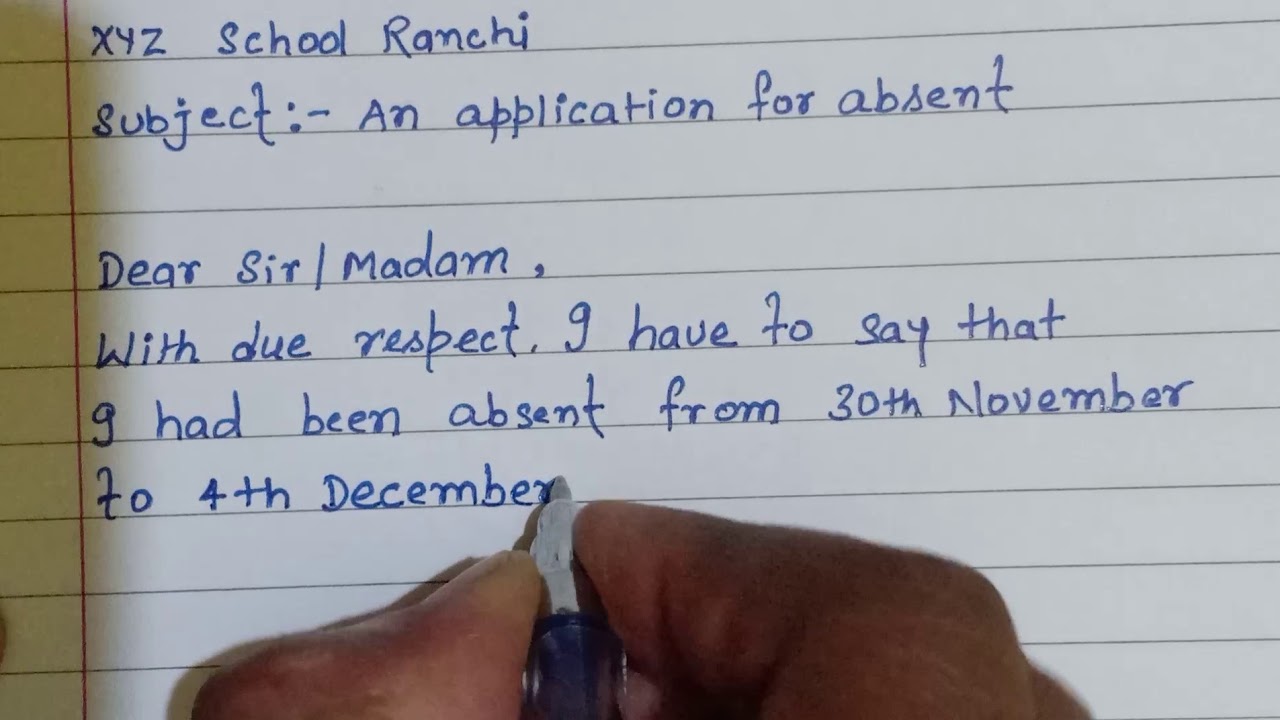 XYZ School Ranchi
Subject:- An application for absent
Dear Sir/Madam,
With due respect. I have to say that
I had been absent from 30th November
to 4th December